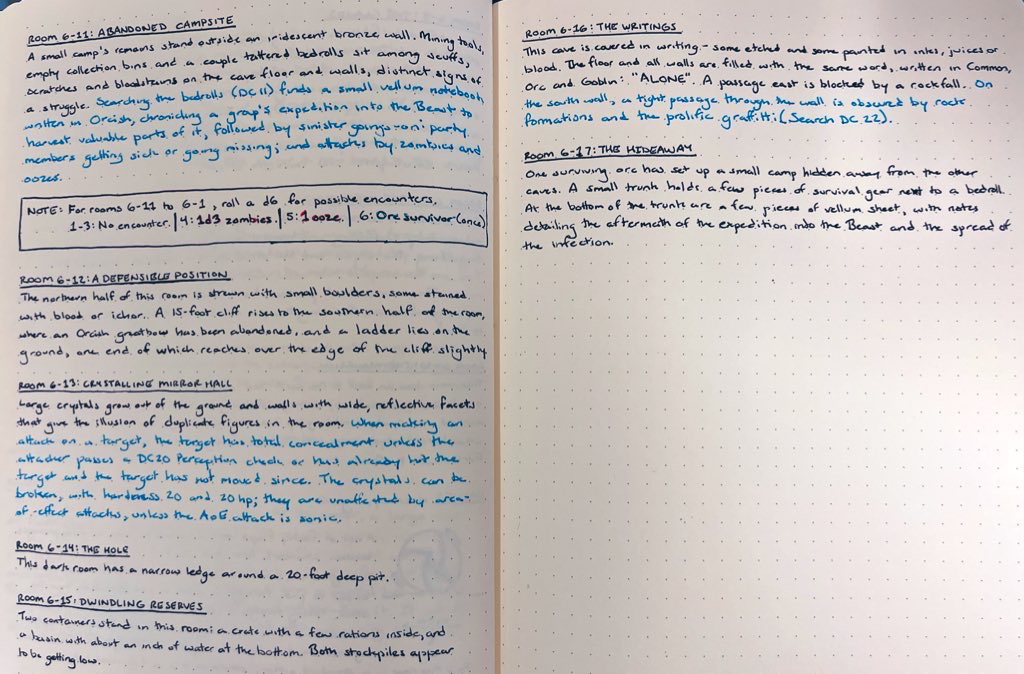 ROOM 6-11: ABANDONED CAMPSITE
A small camp's remains stand outside an iridescent bronze wall. Mining tools,
empty collection bins and a couple tattered bedrolls sit among scuffs,
scratches and bloodstains on the cave floor and walls, distinct signs of
a struggle. Searching the bedrolls (DC 11) finds a small vellum notebook
written in Orcish, chronicling a group's expedition into the Beast to
harvest valuable parts of it, followed by sinister goings-on: party
members getting sick or going missing; and attacks by zombies and
oozes.
NOTE: For rooms 6-11 to 6-1, roll a d6 for possible encounters.
1-3: No encounter. | 4: 1d3 zombies. | 5: 1 ooze. | 6: Orc survivor (once)
ROOM 6-12: A DEFENSIBLE POSITION
The northern half of this room is strewn with small boulders, some stained
with blood or ichor. A 15-foot cliff rises to the southern half of the room,
where an Orcish greatbow has been abandoned, and a ladder lies on the
ground, one end of which reaches over the edge of the cliff slightly
ROOM 6-13: CRYSTALLINE MIRROR HALL
Large crystals grow out of the ground and walls with wide, reflective facets
that give the illusion of duplicate figures in the room. When making an
attack on a target, the target has total concealment, unless the
attacker passes a DC20 Perception check or has already hit the
target and the target has not moved since. The crystals can be
broken, with hardness 20 and 20 hp; they are unaffected by area-
of-effect attacks, unless the AoE attack is sonic.
ROOM 6-14: THE HOLE
This dark room has a narrow ledge around a 20-foot deep pit.
ROOM 6-15: DWINDLING RESERVES
Two containers stand in this room: a crate with a few rations inside, and
a basin with about an inch of water at the bottom. Both stockpiles appear
to be getting low.
ROOM 6-16: THE WRITINGS
This cave is covered in writing - some etched and some painted in inks, juices or
blood. The floor and all walls are filled with the same word, written in Common,
Orc and Goblin: "ALONE". A passage east is blocked by a rockfall. On
the south wall, a tight passage through the wall is obscured by rock
formations and the prolific graffiti (Search DC 22).
ROOM 6-17: THE HIDEAWAY
One surviving orc has set up a small camp hidden away from the other
caves. A small trunk holds a few pieces of survival gear next to a bedroll.
At the bottom of the trunk are a few pieces of vellum sheet, with notes
detailing the aftermath of the expedition into the Beast and the spread of
the infection.